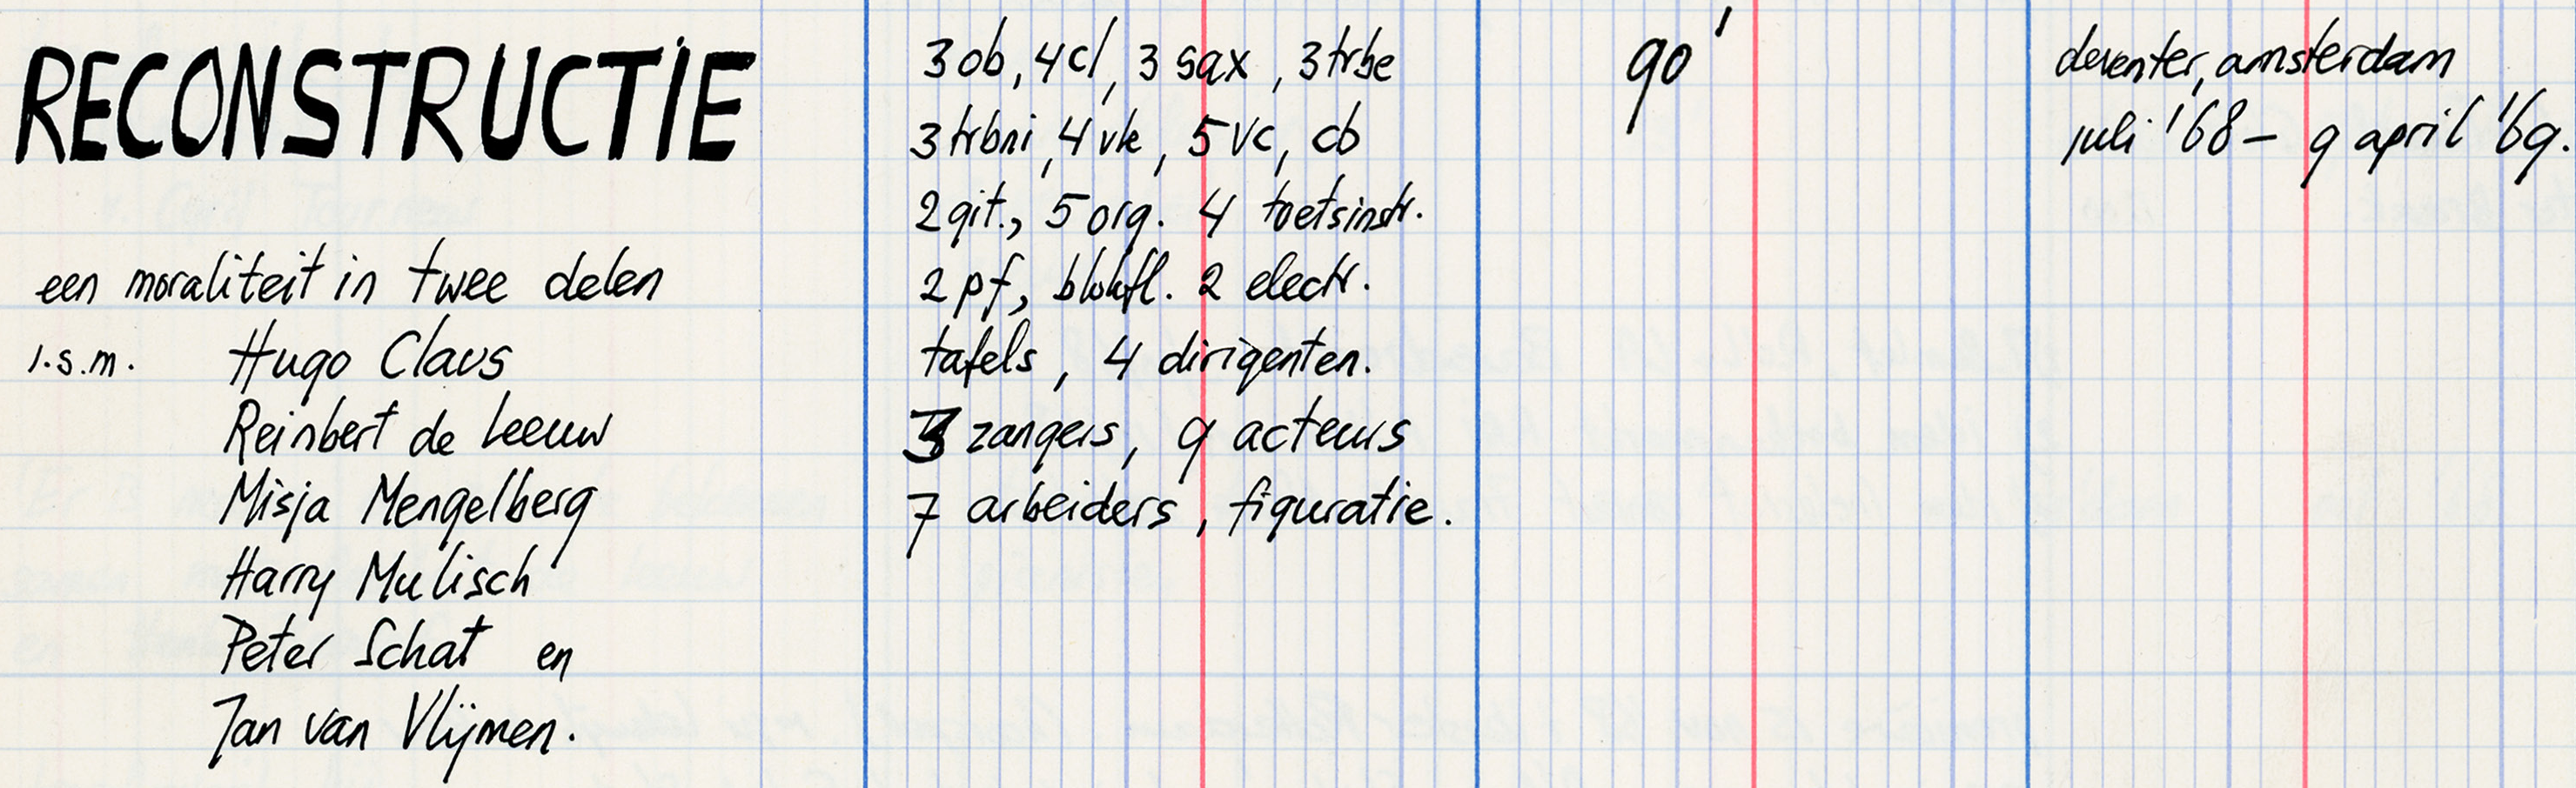 RECONSTRUCTIE
een moraliteit in twee delen
i.s.m. Hugo Claus
Reinbert de Leeuw
Misja Mengelberg
Harry Mulisch
Peter Schat en
Jan van Vlijmen.
3 ob, 4 cl, 3 sax, 3 trbe
3 trbni, 4 vle, 5 vc, cb
2 git., 5 org. 4 toetsinstr.
2 pf, blokfl. 2 electr.
tafels, 4 dirigenten.
3 zangers, 9 acteurs
7 arbeiders, figuratie.
90'
deventer, amsterdam
juli '68 - 9 april '69.